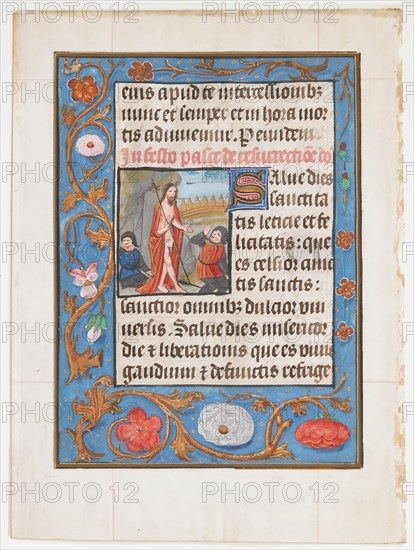 eius apud te intercessionibꝫ
nunc et semper et in hora mor
tis adiuuemur. Per eundem
In festo pasce de resurrectiōe
Salue dies
sanctita
tis leticie et fe
licitatis: que
es celsior
tis sanctis:
sanctior omnibꝫ dulcior vni
uersis. Salue dies misericor
die & liberationis que es
gaudium & defunctis refrige
PHOTO12